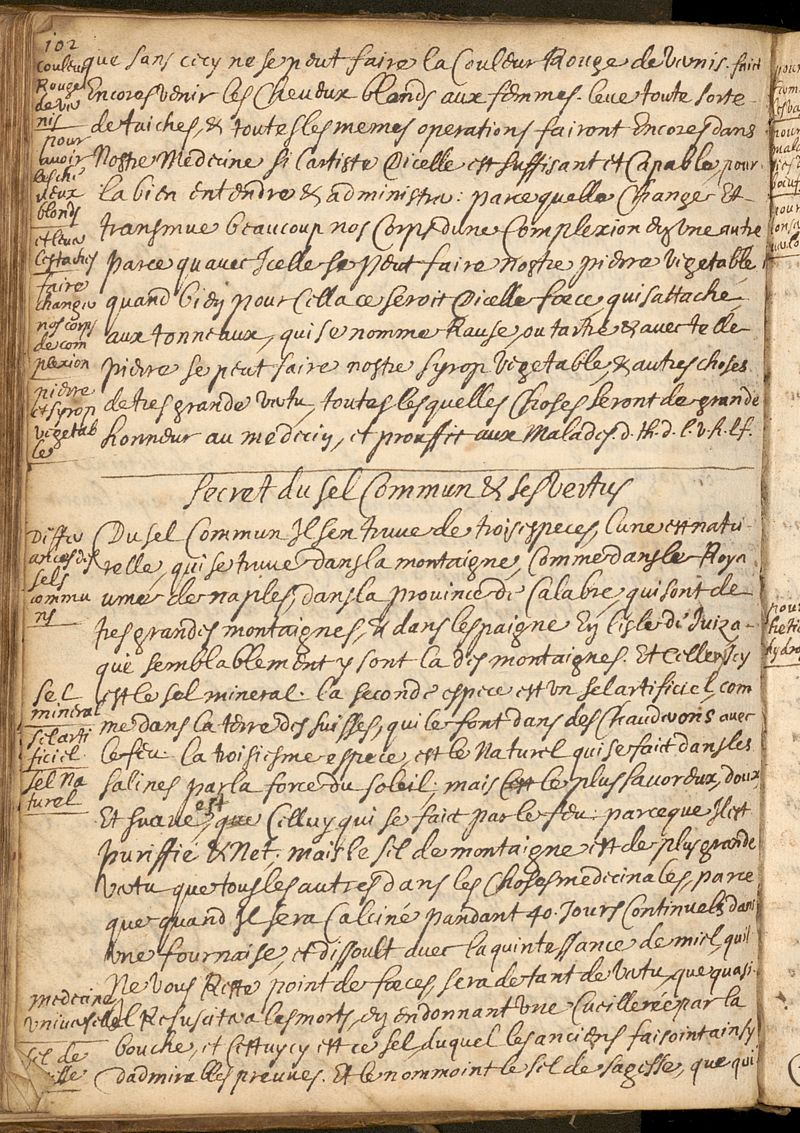 102
que sans cecy ne se peut faire la Couleur Rouge de venis. fait
Encores venir les Cheveux blonds aux femmes. leve toute sorte
de taiches, & toutes les memes operations fairont Encores dans
Nostre Medecine si l'artiste D'icelle est suffisant et Capable, pour
la bien entendre & administrer: parce quelle Change Et
transmue beaucoup nos Corps dune Complexion en une autre
parce quavec Icelle se peut faire nostre pierre vegetable
quand bien pour Cella ce seroit D'icelle foece qui sattache
aux tonneaux, qui se nomme Rause, ou tartre & avec telle
pierre se peut faire nostre syrop vegetable, & autres choses
de tres grande vertu, toutes lesquelles Choses seront de grande
honneur au medecin, et prouffit aux Malades. d. th. d. l. v. R. lf.
Couleur
Rouge
de ve
nis
pour
avoir
les che
veux
blonds
et leve
les taches
faire
changer
nos corps
de com
plexion
pierre
et syrop
vegetab
le
Secret du sel Commun & ses vertus
Du sel Commun Il sen truve de trois especes, l'une est natu
relle, qui se truve dans la montaigne, Comme dans le Roya
ume de naples, dans la province de Calabre, qui sont de
tres grandes montaignes, & dans lespaigne En l'isle de Iuiza
que semblablement y sont la des montaignes. Et Celluy Icy
est le sel mineral. la seconde espece est un sel artificiel, com
me dans la terre des suisses, qui le font dans des Chauderons avec
le feu. la troisiesme espece, est le Naturel qui se fait dans les
salines par la force du soleil; mais le plus savoreux, doux
Et suave, est Celluy qui se fait par le feu: parce que Il est
puriffié & Net; mais le sel de montaigne est de plus grande
vertu que tous les autres dans les Choses medecinales, parce
que quand Il sera Calciné pandant 40. Jours Continuels dans
une fournaise, et dissoult avec la quintessance de miel, quil
Ne vous Reste point de foeces, sera de tant de vertu, que quasi
Il Resuscitera les morts, en en donnant une Cueillerée par la
bouche, et Cettuy cy est ce sel, duquel les anciens faisoint ainsy
d'admirables preuves. Et le nommoint le sel de sagesse, que qui
Differ
ances des
sels
commu
ns
sel
mineral
sel arti
ficiel
sel Na
turel
medecine
universelle
sel de